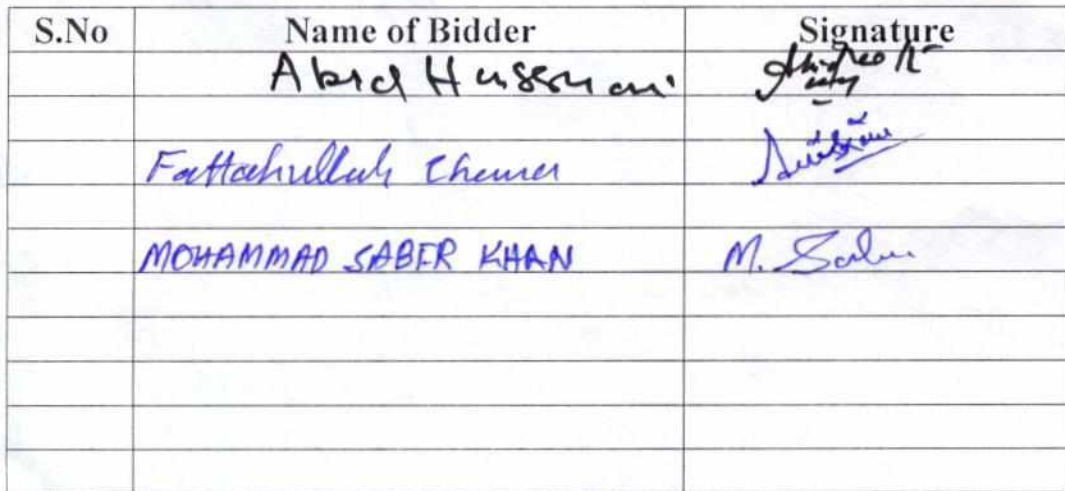 S.No Name of Bidder Signature
Abid Hussain
Fattahullah
MOHAMMAD SABER KHAN M. Saber